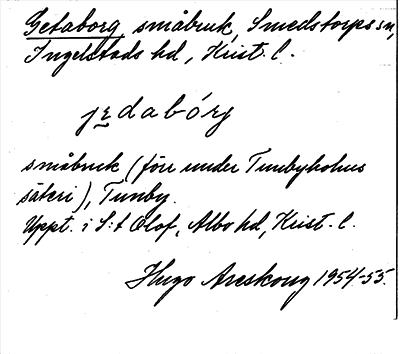 Getaborg småbruk, Smedstorps sn,
Ingelstads hd, Krist. l.
jɛdabórj
småbruk (förr under Tunbyholms
säteri), Tunby.
Uppt. i S:t Olof, Albo hd, Krist. l.
Hugo Areskoug 1954-55.